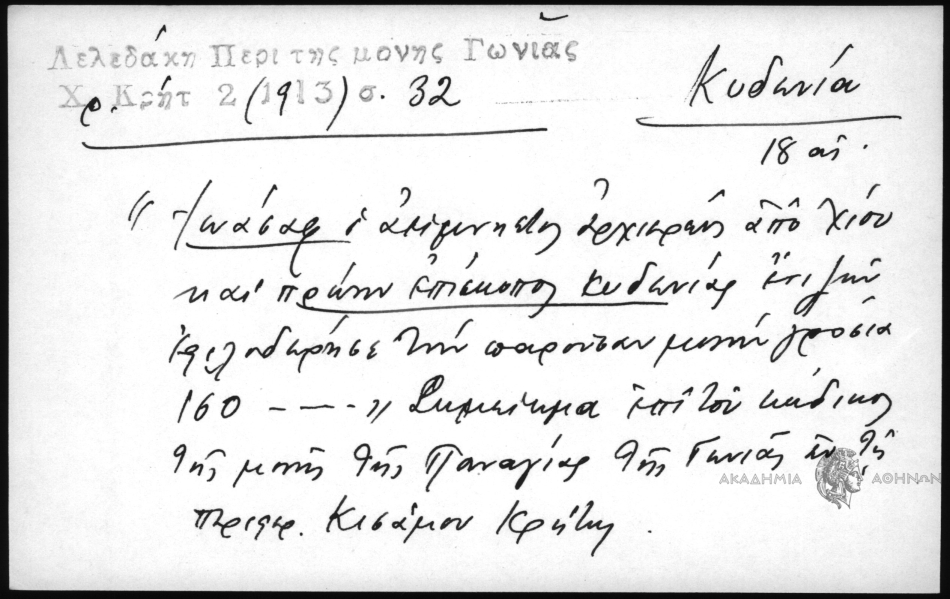 Δελεδάκη Περι της μονης Γωνιᾶς
Χρ. Κρήτ 2 (1913) σ. 32
Κυδωνία
18 αἰ.
"Ἰωάσαφ ὁ ἀείμνηστος ἀρχιερεὺς ἀπὸ Χίου
καὶ πρώην ἐπίσκοπος Κυδωνίας ἔτι ζῶν
ἐφιλοδώρησε τὴν παροῦσαν μονὴν γρόσια
160 ---" Σημείωμα ἐπὶ τοῦ κώδικος
τῆς μονῆς τῆς Παναγίας τῆς Γωνιᾶς ἐν τῇ
περιφερ. Κισάμου Κρήτης.
ΑΚΑΔΗΜΙΑ ΑΘΗΝΩΝ